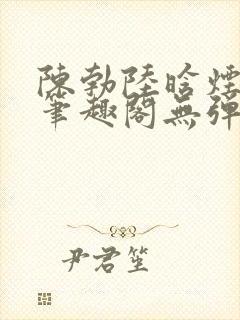 陳勃陸晗煙
筆趣閣無彈
尹君笙